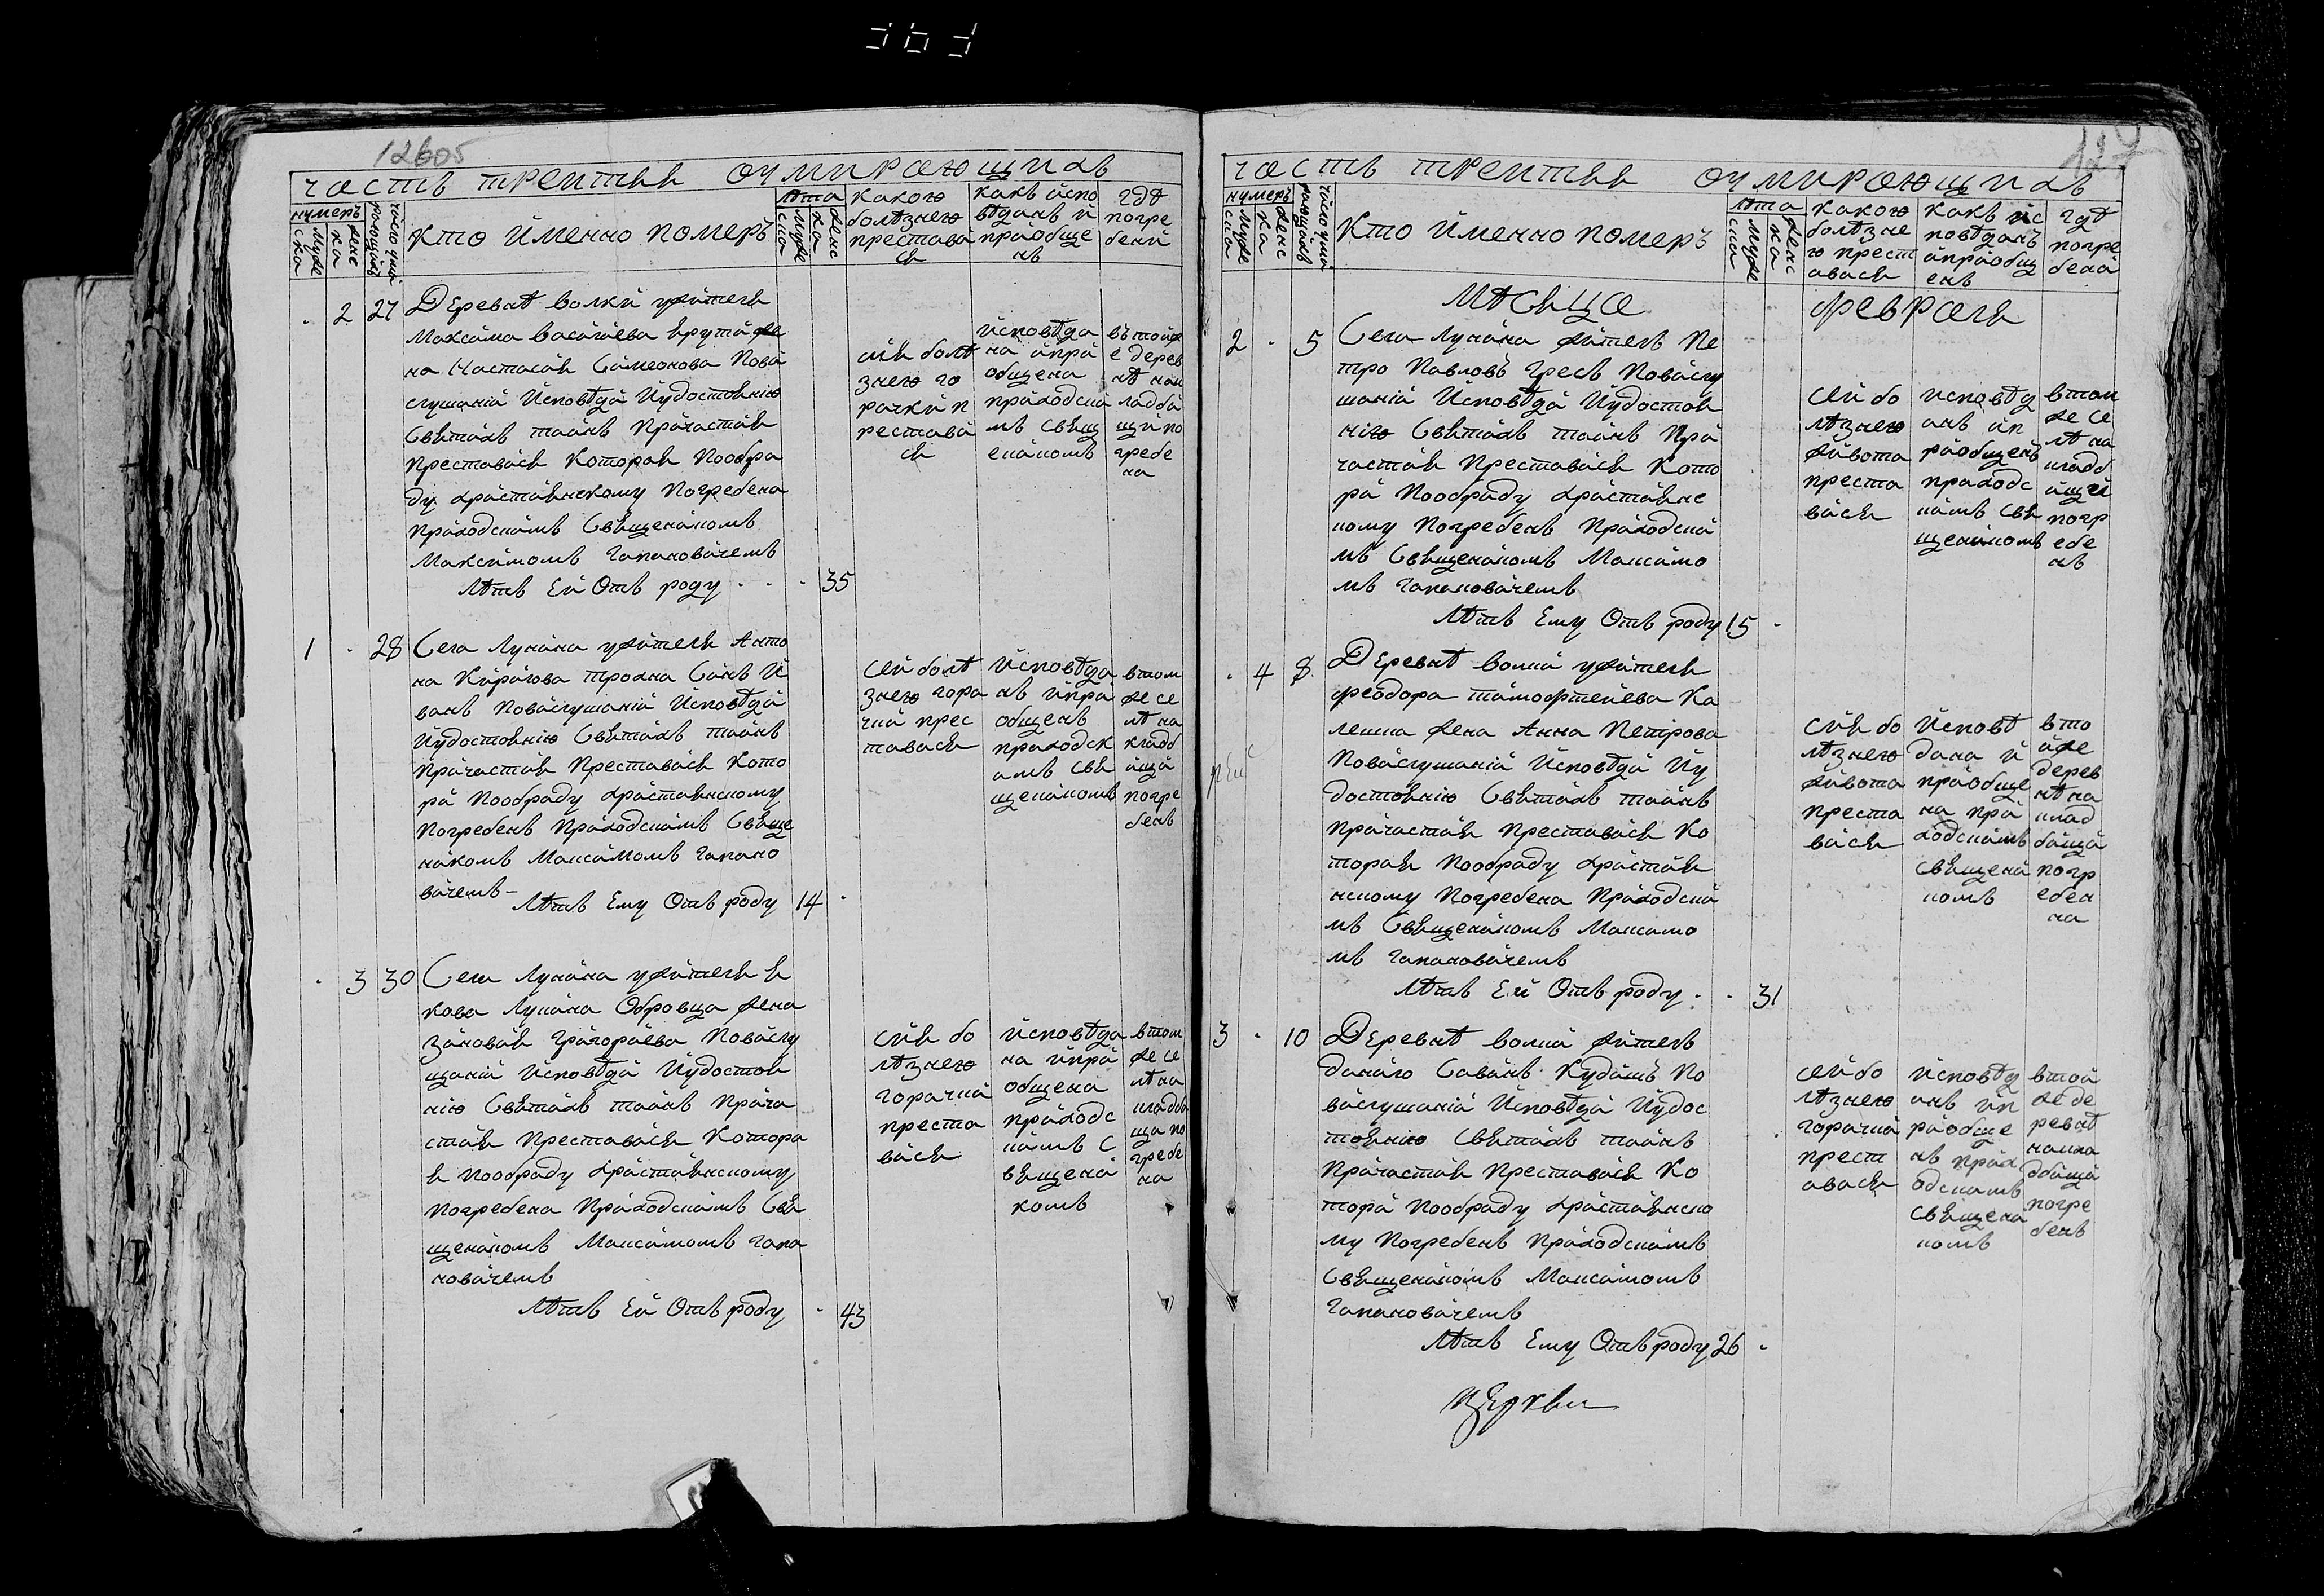 12605
часть третья оумирающихъ
нумеръ
мужеска
женска
число умирающихъ
Кто именно померъ
лѣта
мужеска
женска
какою
болѣзнею
преставися
какъ испо
вѣданъ и
приобще
нъ
гдѣ
погре
бени
2 27 Деревнѣ волки жителя
Максима Василиева Крути же
на Настасия Симеонова Пови
слушании Исповѣди Иудостоянию
Святыхъ таинъ Причастия
Преставися Которая Пообра
ду християнскому Погребена
Приходскимъ Священикомъ
Максимомъ Гапановичемъ
Лѣтъ Ей Отъ роду 35
сия болѣ
знею го
рачки п
реставй
ся
исповѣда
на и при
общена
приходски
мъ Свящ
еникомъ
втойж
е дерев
нѣ на к
ладби
щи по
гребе
на
1 28 Села Лунина жителя Анто
на Кирилова трохна Синъ И
ванъ Повислушании Исповѣди
Иудостоянию Святихъ таинъ
Причастия Преставися Кото
ри Пообраду християнскому
Погребенъ Приходскимъ Свяще
никомъ Максимомъ Гапано
вичемъ
Лѣтъ Ему Отъ роду 14
Сей болѣ
знею гора
чки прес
тавися
Исповѣда
нъ и при
общенъ
приходск
имъ Свя
щеникомъ
втом
же се
лѣ на
кладб
ищи
погре
бенъ
3 30 Села Лунина жителя Я
кова Лунина Обровца жена
Зиновия Григориева Повислу
шании Исповѣди Иудостоя
нию Святихъ таинъ Прича
стия Преставися Котора
я Пообраду християнскому
Погребена Приходскимъ Свя
щеникомъ Максимомъ Гапа
новичемъ
Лѣтъ Ей Отъ роду 43
сия бо
лѣзнею
горачки
преста
вися
исповѣда
на и при
общена
приходс
кимъ С
вящени
комъ
втом
же се
лѣ на
кладби
щи по
гребе
на
127
часть третья оумирающихъ
нумеръ
мужеска
женска
число умирающихъ
Кто именно померъ
лѣта
мужеска
женска
какою
болѣзне
ю прест
ависи
какъ ис
повѣданъ
и приобщ
енъ
гдѣ
погре
бени
Мѣсяца Февраля
2 5 Села Лунина житель Пе
тро Павловъ Гресь Повислу
шании Исповѣди Иудостоя
нию Святихъ таинъ При
частия Преставися Кото
ри Пообраду християнс
кому Погребенъ Приходски
мъ Священикомъ Максимо
мъ Гапановичемъ
Лѣтъ Ему Отъ роду 15
сей бо
лѣзнею
живота
преста
вися
исповѣд
анъ и п
риобщенъ
приходс
кимъ свя
щеникомъ
втом
же се
лѣ на
кладб
ищи
погр
ебе
нъ
4 8 Деревнѣ волки жителя
Феодора тимофтеиева Ка
лешка жена Анна Петрова
Повислушании Исповѣди Иу
достоянию Святихъ таинъ
Причастия Преставися Ко
торая Пообраду християн
скому Погребена Приходски
мъ Священикомъ Максимо
мъ Гапановичемъ
Лѣтъ Ей Отъ роду 31
сия бо
лѣзнею
живота
преста
вися
исповѣ
дана и
приобще
на при
ходскимъ
Священи
комъ
вто
йже
дерев
нѣ на
клад
бищи
погр
ебен
на
3 10 Деревнѣ волки житель
Данило Савинъ Кудинъ По
вислушании Исповѣди Иудос
тоянию Святихъ таинъ
Причастия Преставися Ко
тори Пообраду християнско
му Погребенъ Приходскимъ
Священикомъ Максимомъ
Гапановичемъ
Лѣтъ Ему Отъ роду 26
сей бо
лѣзнею
горачки
прест
ависи
исповѣд
анъ и п
риобще
нъ прих
одскимъ
Священи
комъ
втой
же де
ревнѣ
на кла
дбищи
погре
бенъ
церкви